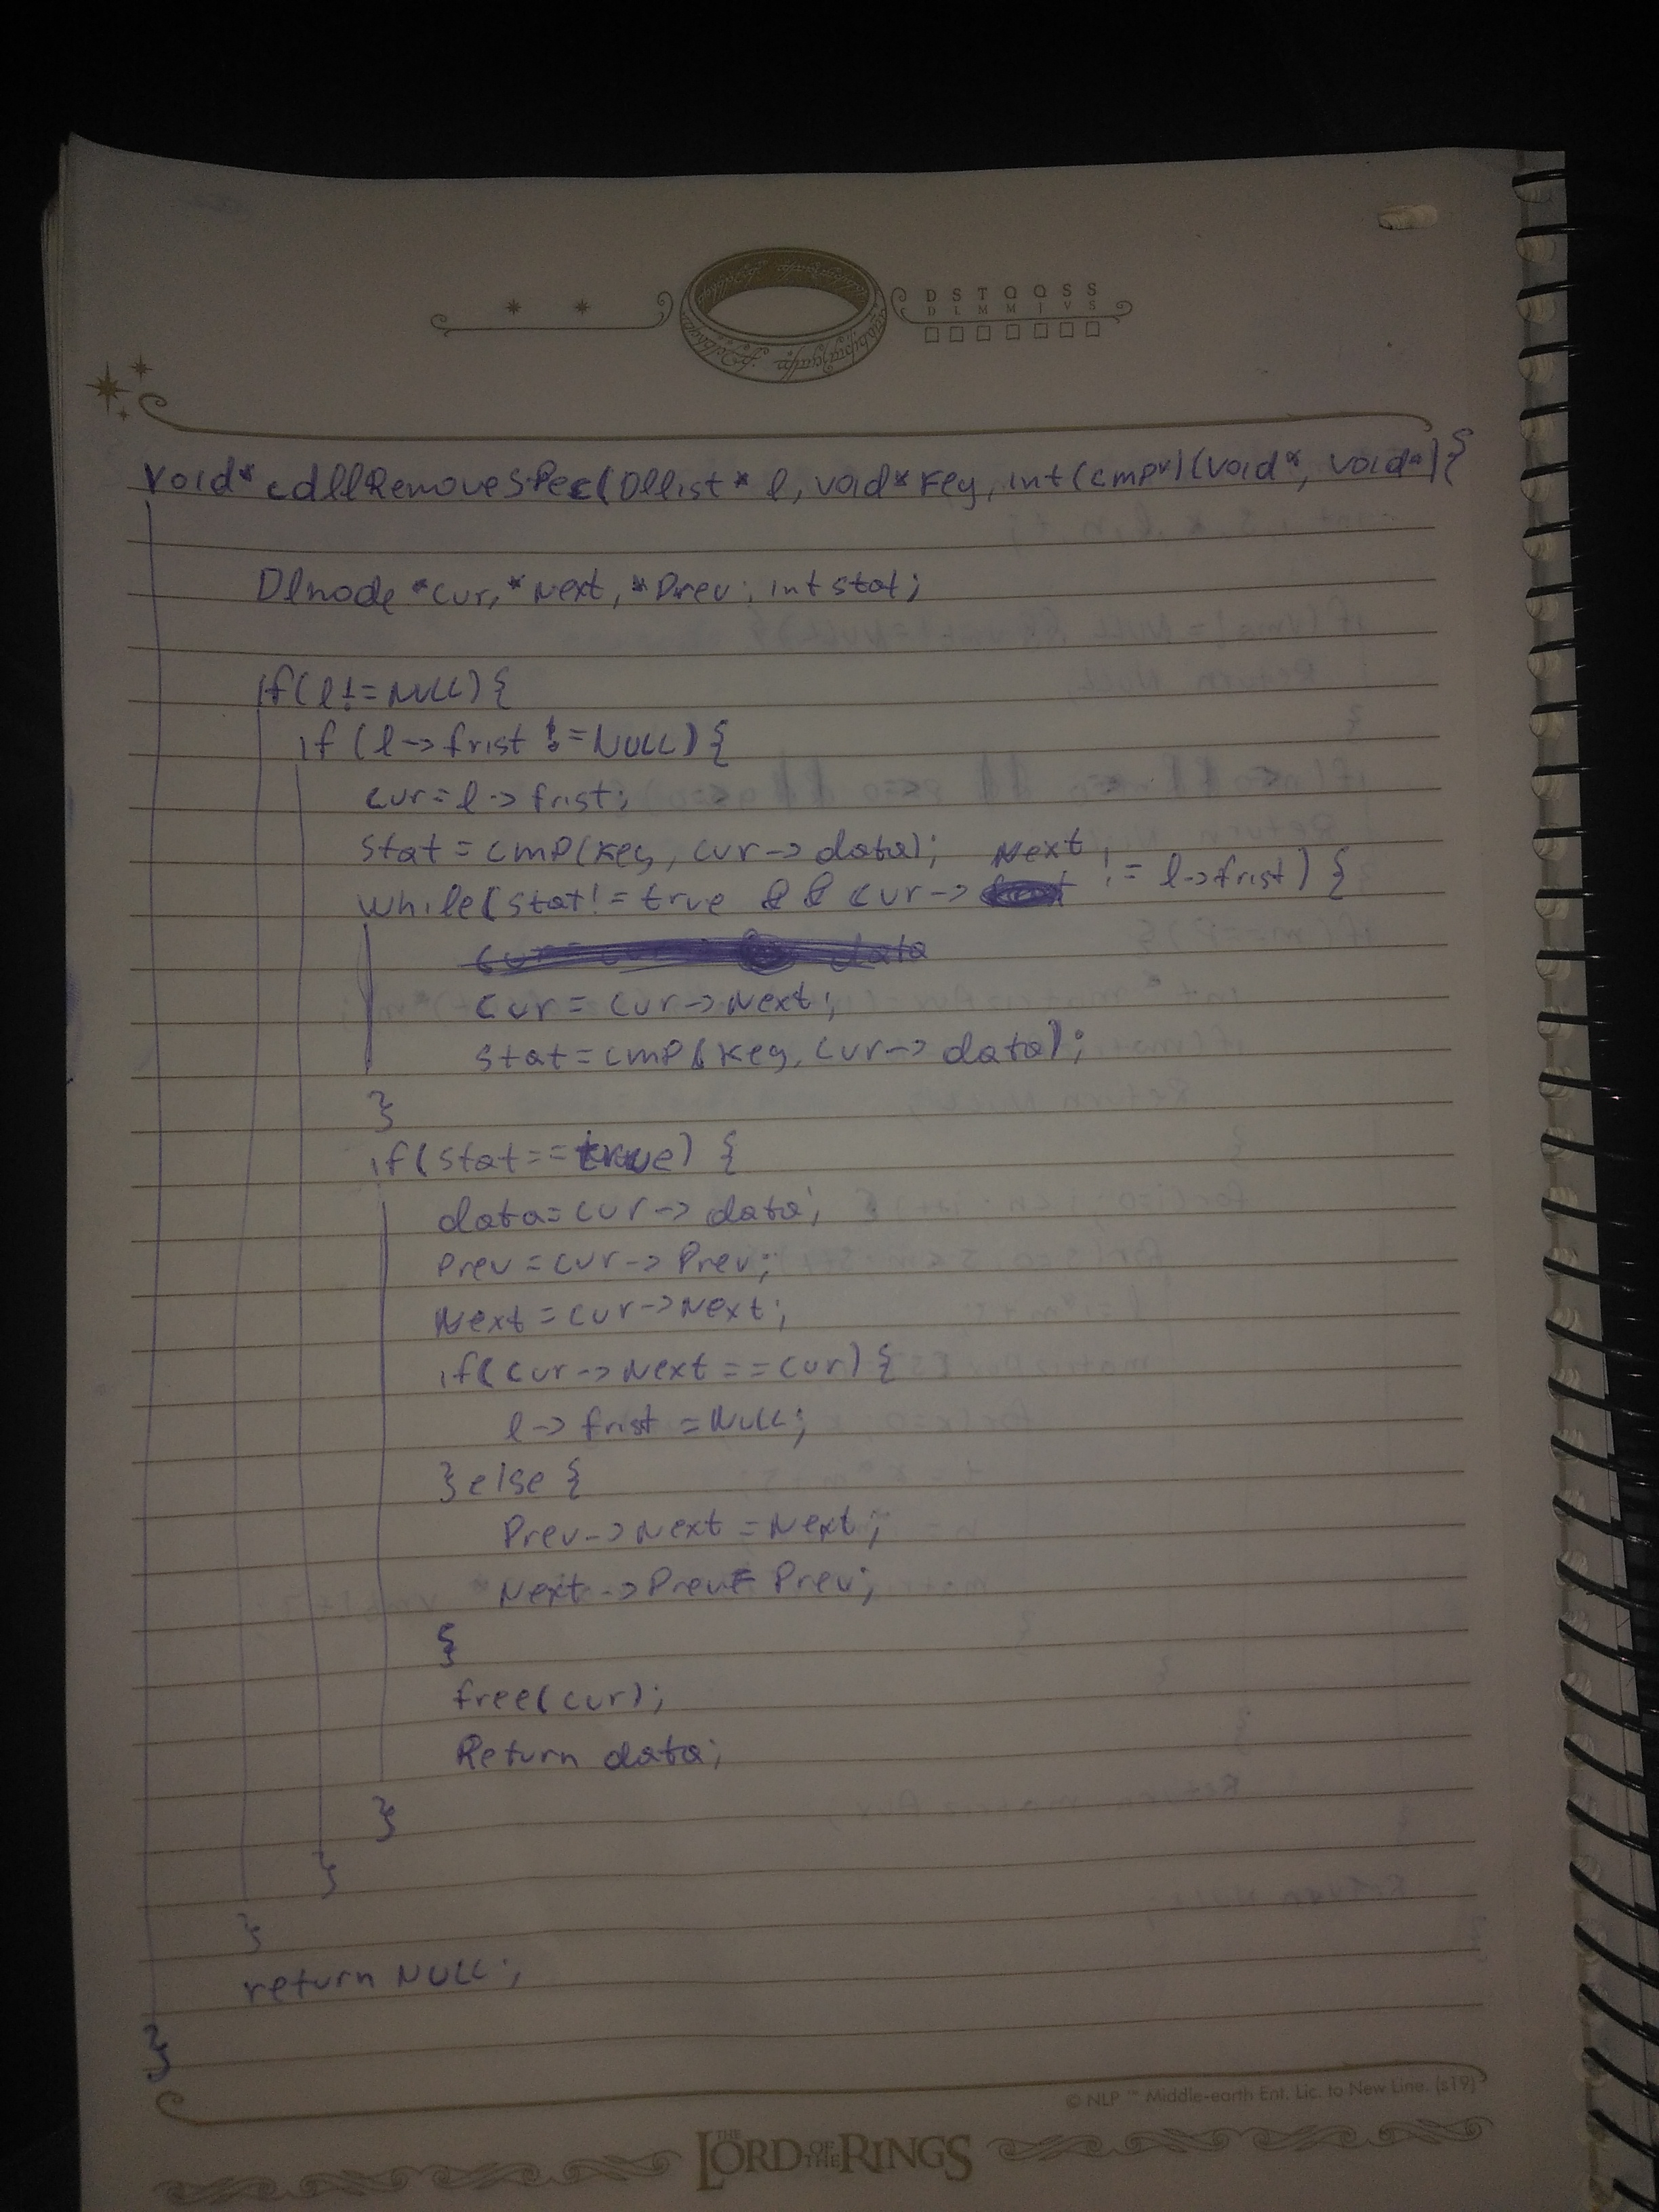 D S T Q Q S S
D L M M J V S
void* cdllRemoveSpec(Dllist* l, void* key, int(cmp*)(void*, void*){
Dlnode *cur, *Next, *Prev; int stat;
if(l!=NULL){
if(l->frist !=NULL){
cur=l->frist;
stat=cmp(key, cur->data);
while(stat!=true && cur->Next != l->frist){
cur=cur->Next;
stat=cmp(key, cur->data);
}
if(stat==true) {
data=cur->data;
Prev=cur->Prev;
Next=cur->Next;
if(cur->Next==cur){
l->frist=NULL;
}else{
Prev->Next=Next;
Next->Prev=Prev;
}
free(cur);
Return data;
}
}
}
return NULL;
}
© NLP ™ Middle-earth Ent. Lic. to New Line. (s19)
THE LORD OF THE RINGS